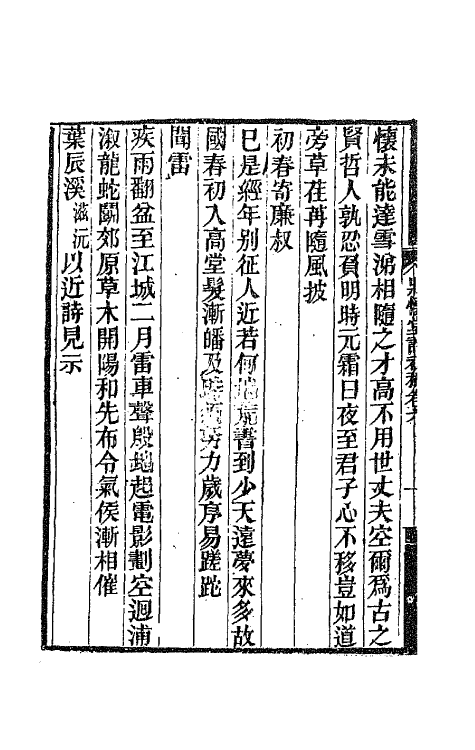 懷未能達雪涕相隨之才高不用世丈夫空爾爲古之
賢哲人孰忍負明時元霜日夜至君子心不移豈如道
旁草荏苒隨風披
初春寄廉叔
已是經年别征人近若何地荒書到少天遠夢來多故
國春初入高堂髮漸皤及 努力歲序易蹉跎
聞雷
疾雨翻盆至江城二月雷車聲殷地起電影劃空迴浦
溆龍蛇鬭郊原草木開陽和先布令氣侯漸相催
葉辰溪滋沅以近詩見示